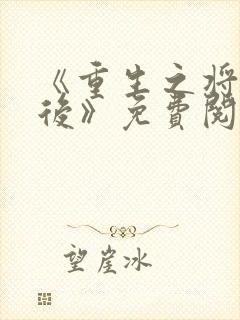 《重生之將
後》免費閱
望崖冰